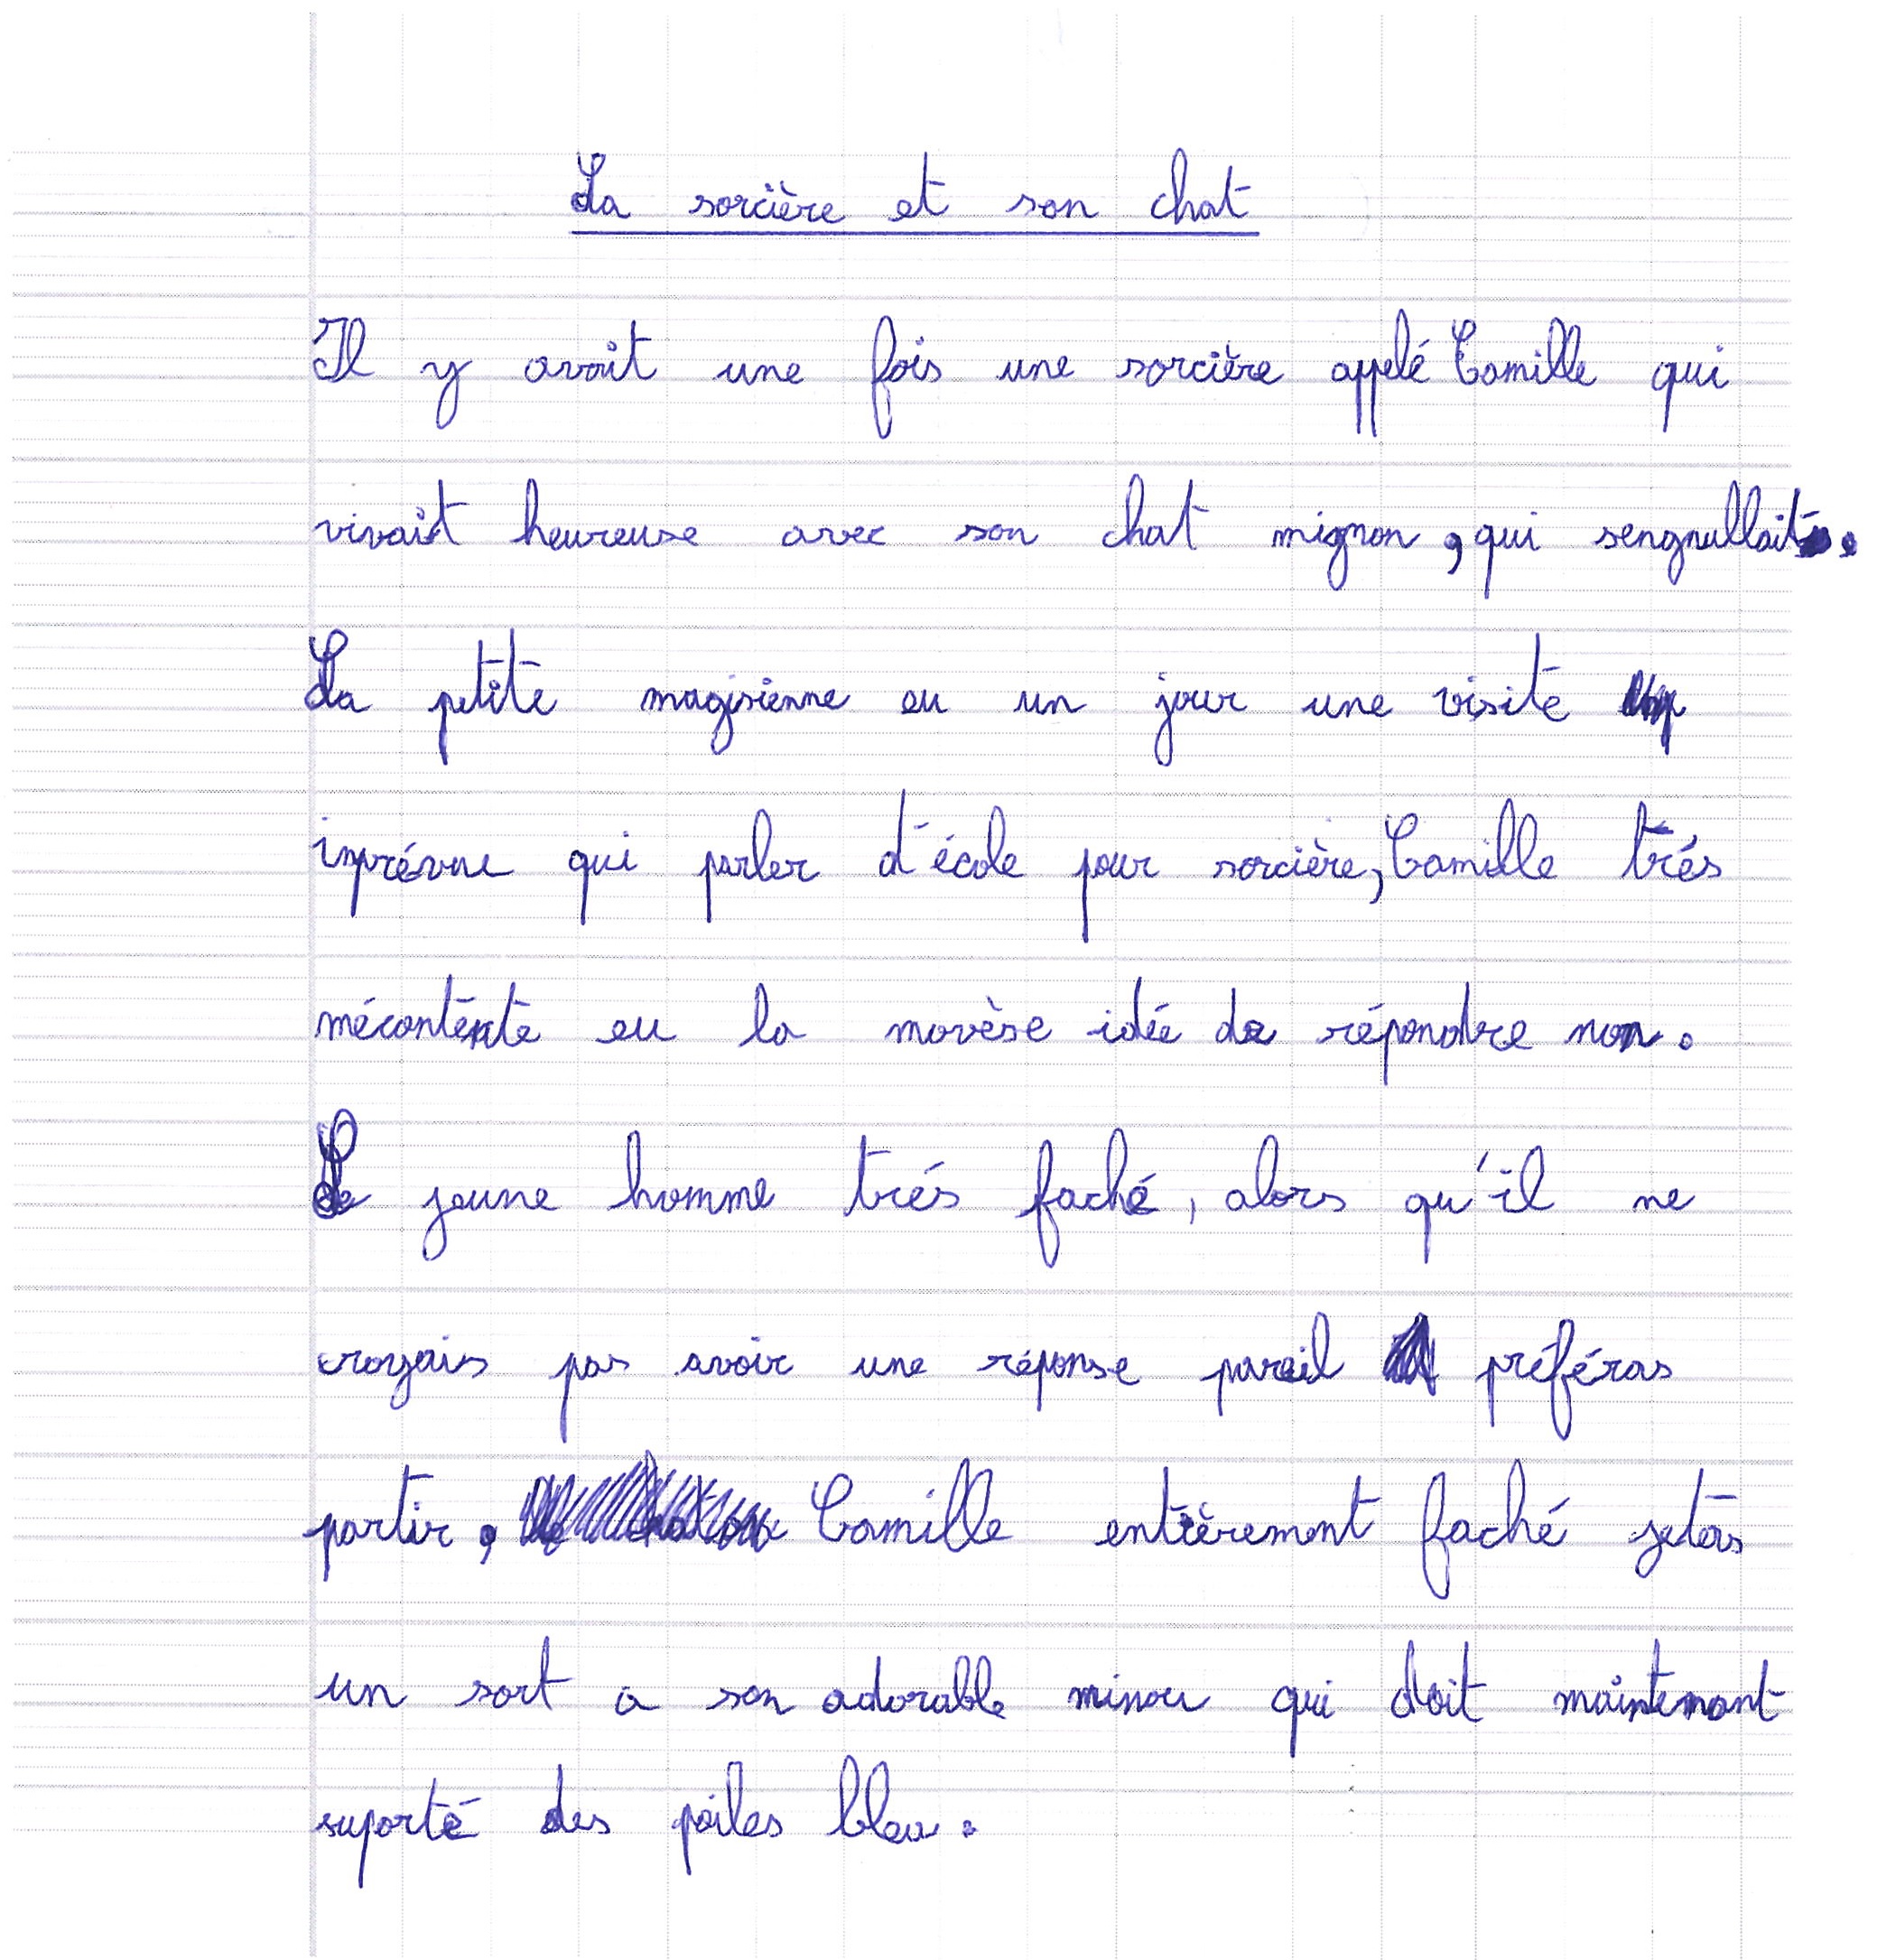 La sorcière et son chat
Il y avait une fois une sorcière appelé Camille qui
vivait heureuse avec son chat mignon, qui sengnullait.
La petite magisienne eu un jour une visite
imprévue qui parler d'école pour sorcière, Camille trés
mécontente eu la movèse idée de répondre non.
Le jeune homme trés faché, alors qu'il ne
croyais pas avoir une réponse pareil préféras
partir, Camille entièrement faché jetas
un sort a son adorable minou qui doit maintenant
suporté des poiles bleu.